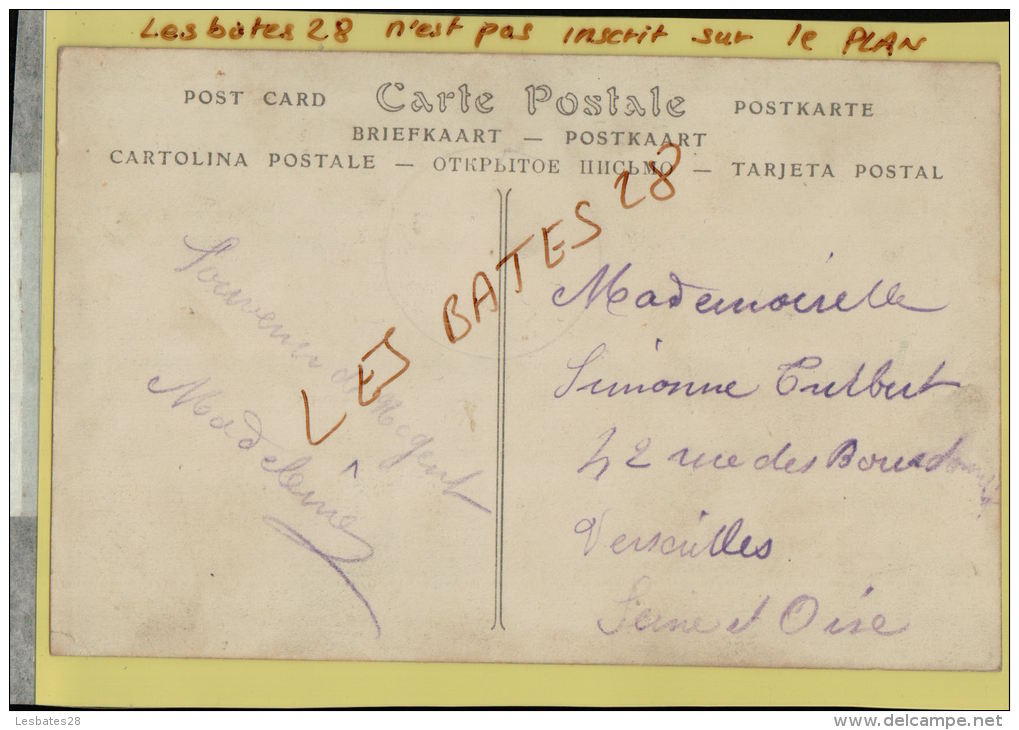 Lesbates 28 n'est pas inscrit sur le PLAN
POST CARD Carte Postale POSTKARTE
BRIEFKAART — POSTKAART
CARTOLINA POSTALE — ОТКРЫТОЕ ПИСЬМО — TARJETA POSTAL
LES BATES 28
Souvenir de Nogent
Madeleine
Mademoiselle
Simonne
42 rue des
Versailles
Seine et Oise
Lesbates28
www.delcampe.net